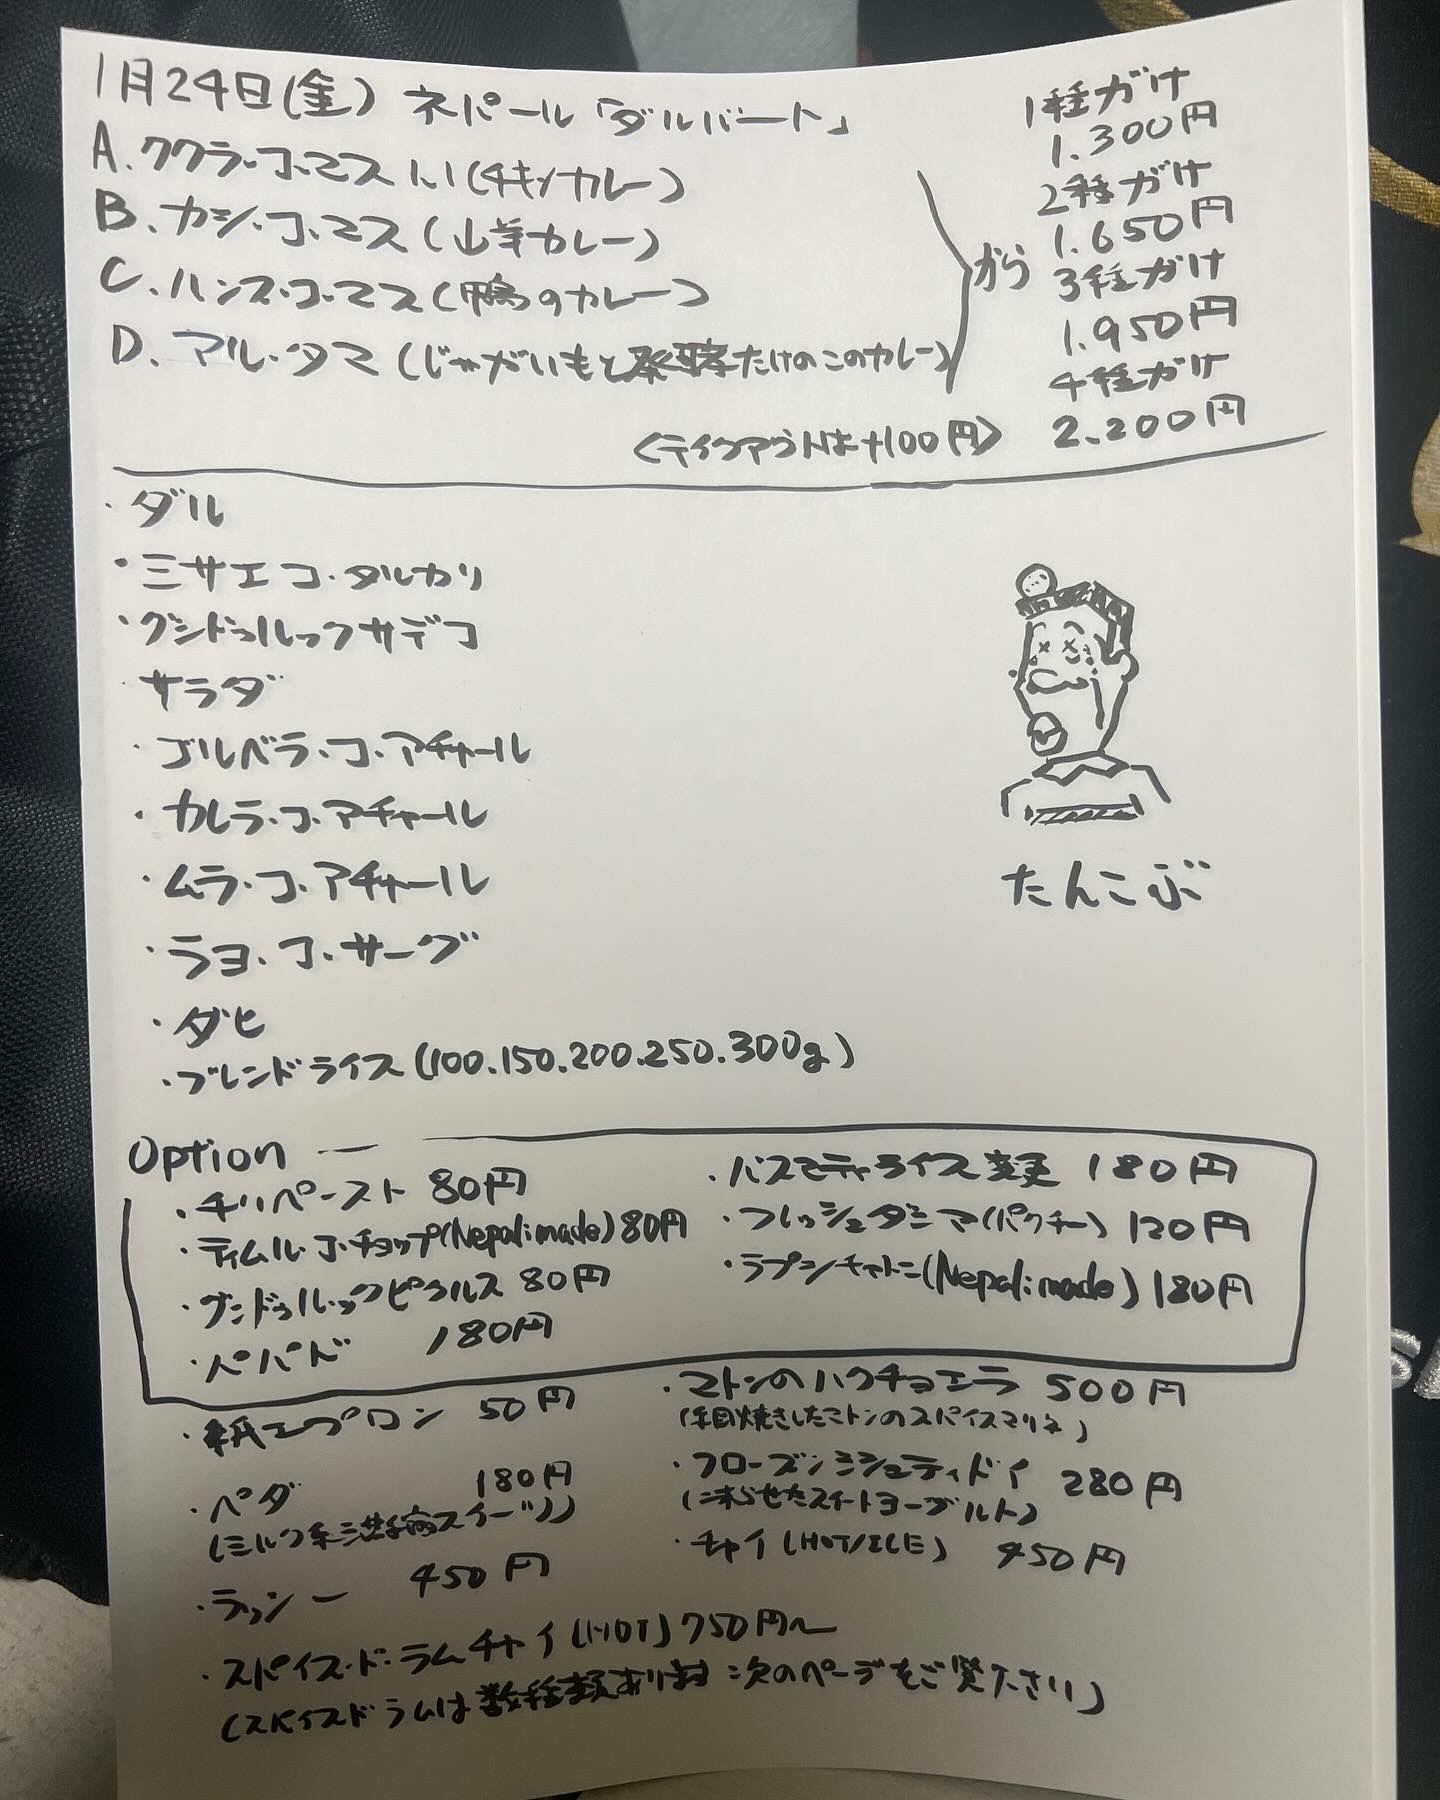 1月24日(金) ネパール「ダルバート」
A. ククラ・コ・マス (チキンカレー)
B. カシ・コ・マス (山羊カレー)
C. ハンス・コ・マス (鴨のカレー)
D. アル・タマ (じゃがいもと発酵たけのこのカレー)
から
1種がけ
1.300円
2種がけ
1.650円
3種がけ
1.950円
4種がけ
2.200円
<テイクアウトは+100円>
・ダル
・ミサエコ・タルカリ
・グンドゥルックサデコ
・サラダ
・ゴルベラ・コ・アチャール
・カレラ・コ・アチャール
・ムラ・コ・アチャール
・ラヨ・コ・サーグ
・ダヒ
・ブレンドライス(100.150.200.250.300g)
たんこぶ
Option
・チリペースト 80円
・ティムル・コ・チョップ(Nepal:made)80円
・グンドゥルックピクルス 80円
・パパド 180円
・バスマティライス変更 180円
・フレッシュダニア(パクチー) 120円
・ラプシチャトニ(Nepal:made) 180円
・紙エプロン 50円
・ペダ 180円
(ミルク系スイーツ)
・ラッシー 450円
・マトンのハクチョエラ 500円
(焼きしたマトンのスパイスマリネ)
・フローズンミシュティドイ 280円
(こおらせたスイートヨーグルト)
・チャイ(HOT/ICE) 450円
・スパイスド・ラムチャイ(HOT)750円〜
(スパイスドラムは数種類あります 次のページをご覧下さい)